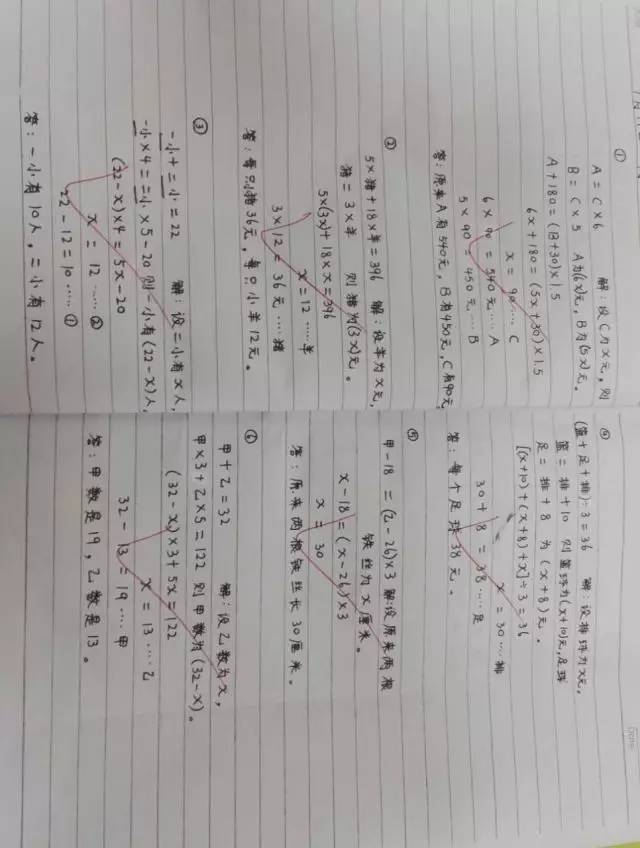 ①
A = C × 6 解：设C为x元，则
B = C × 5 A为(6x)元，B为(5x)元。
A + 180 = (B + 30) × 1.5
6x + 180 = (5x + 30) × 1.5
x = 90 …… C
6 × 90 = 540元 …… A
5 × 90 = 450元 …… B
答：原来A有540元，B有450元，C有90元
②
5 × 猪 + 18 × 羊 = 396 解：设羊为x元，
猪 = 3 × 羊 则猪为(3x)元。
5×(3x) + 18 × x = 396
x = 12 …… 羊
3 × 12 = 36元 …… 猪
答：每只小猪36元，每只小羊12元。
③
一小 + 二小 = 22 解：设二小有x人，
一小 × 4 = 二小 × 5 - 20 则一小有(22 - x)人，
(22 - x) × 4 = 5x - 20
x = 12 …… ②
22 - 12 = 10 …… ①
答：一小有10人，二小有12人。
④
(篮 + 足 + 排) ÷ 3 = 36 解：设排球为x元，
篮 = 排 + 10 则篮球为(x+10)元，足球
足 = 排 + 8 为(x+8)元。
[(x+10) + (x+8) + x] ÷ 3 = 36
x = 30 …… 排
30 + 8 = 38 …… 足
答：每个足球38元。
⑤
甲 - 18 = (乙 - 26) × 3 解：设原来两根
铁丝为x厘米。
x - 18 = (x - 26) × 3
x = 30
答：原来两根铁丝长30厘米。
⑥
甲 + 乙 = 32 解：设乙数为x，
甲 × 3 + 乙 × 5 = 122 则甲数为(32 - x)。
(32 - x) × 3 + 5x = 122
x = 13 …… 乙
32 - 13 = 19 …… 甲
答：甲数是19，乙数是13。